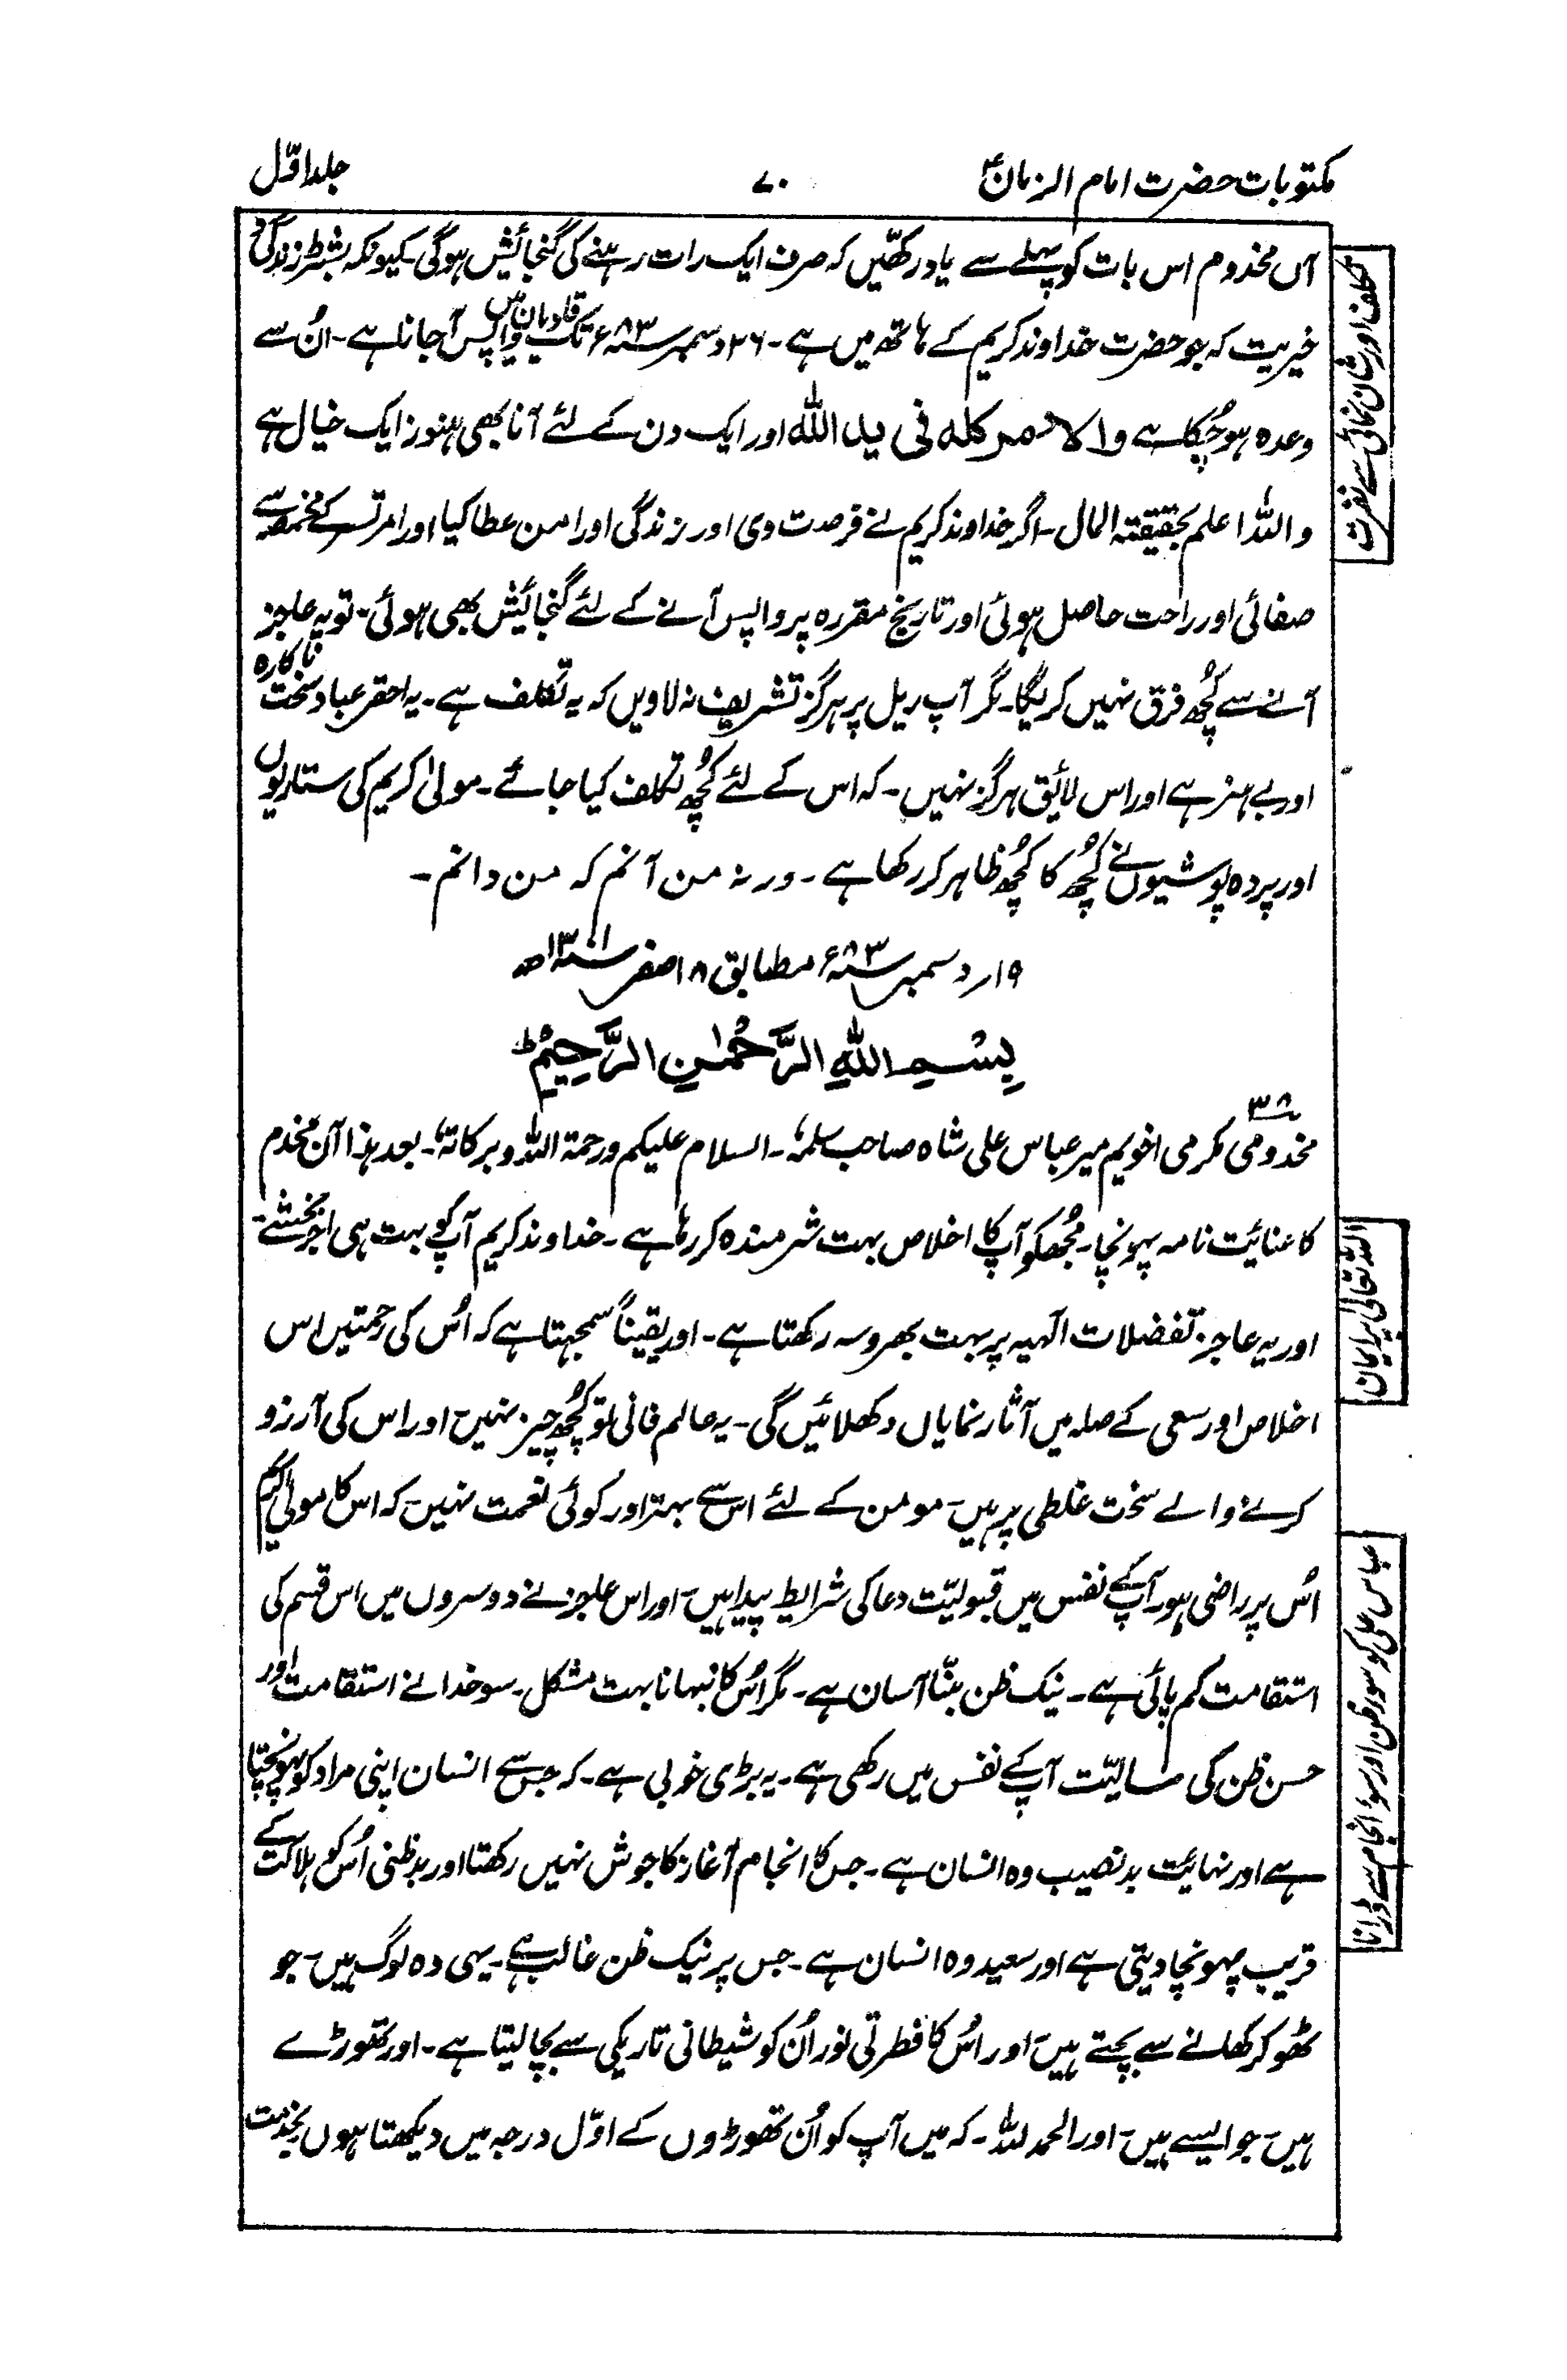 مکتوبات حضرت امام الزمانؑ
۷۰
جلد اوّل
آں مخدوم اس بات کو پہلے سے یاد رکھیں کہ صرف ایک رات رہنے کی گنجائیش ہوگی۔ کیونکہ بشرط زندگی و
خیریت کہ جو حضرت خداوند کریم کے ہاتھ میں ہے۔ ۲۶ دسمبر ۸۳ء تک قادیان میں واپس آجانا ہے۔ اُن سے
وعدہ ہو چُکا ہے والامر کلہ فی ید اللہ اور ایک دن کے لئے آنا بھی ہنوز ایک خیال ہے
واللہ اعلم بحقیقتہ الحال۔ اگر خداوند کریم نے فرصت دی اور زندگی اور امن عطا کیا اور امرتسر کے مخمصہ سے
صفائی اور راحت حاصل ہوئی اور تاریخ مقررہ پر واپس آنے کے لئے گنجائیش بھی ہوئی۔ تو یہ عاجز
آنے سے کُچھ فرق نہیں کریگا۔ مگر آپ ریل پر ہرگز تشریف نہ لاویں کہ یہ تکلف ہے۔ یہ احقر عباد سخت ناکارہ
اور بے ہنر ہے اور اس لائیق ہرگز نہیں۔ کہ اس کے لئے کُچھ تکلف کیا جائے۔ مولیٰ کریم کی ستاریوں
اور پردہ پوشیوں نے کُچھ کا کُچھ ظاہر کر رکھا ہے۔ ورنہ من آنم کہ من دانم۔
۱۹؍ دسمبر ۸۳ء مطابق ۱۸ صفر ۱۳۰۱ھ
بِسْمِ اللہِ الرَّحْمٰنِ الرَّحِیْمِ ط
۳۸
مخدومی مکرمی اخویم میر عباس علی شاہ صاحب سلمہٗ۔ السلام علیکم ورحمۃ اللہ وبرکاتہٗ۔ بعد ہذا آں مخدم
کا عنائیت نامہ پہونچا۔ مُجھکو آپ کا اخلاص بہت شرمندہ کر رہا ہے۔ خداوند کریم آپ کو بہت ہی اجر بخشے۔
اور یہ عاجز تفضلات الٰہیہ پر بہت بھروسہ رکھتا ہے۔ اور یقیناً سمجہتا ہے کہ اُس کی رحمتیں اس
اخلاص اور سعی کے صلہ میں آثار نمایاں دکھلائیں گی۔ یہ عالم فانی تو کُچھ چیز نہیں۔ اور اس کی آرزو
کرنے والے سخت غلطی پر ہیں۔ مومن کے لئے اس سے بہتر اور کوئی نعمت نہیں۔ کہ اس کا مولیٰ کریم
اُس پر راضی ہو۔ آپ کے نفس میں قبولیّت دعا کی شرایط پیدا ہیں۔ اور اس عاجز نے دوسروں میں اس قسم کی
استقامت کم پائی ہے۔ نیک ظن بننّا آسان ہے۔ مگر اُس کا نبہانا بہت مشکل۔ سو خدا نے استقامت اور
حسن ظن کی آپ کے نفس میں رکھی ہے۔ یہ بڑی خوبی ہے۔ کہ جس سے انسان اپنی مراد کو پہونچتا
ہے اور نہائیت بدنصیب وہ انسان ہے۔ جس کا انجام آغاز کا جوش نہیں رکھتا اور بدظنی اُس کو ہلاکت کے
قریب پہونچا دیتی ہے اور سعید وہ انسان ہے۔ جس پر نیک ظن غالب ہے۔ یہی وہ لوگ ہیں۔ جو
ٹھوکر کھانے سے بچتے ہیں۔ اور اُس کا فطرتی نور اُن کو شیطانی تاریکی سے بچا لیتا ہے۔ اور تھوڑے
ہیں۔ جو ایسے ہیں۔ اور الحمد للہ۔ کہ میں آپ کو اُن تھوڑوں کے اوّل درجہ میں دیکھتا ہوں بخدمت
تکلف اور شان نمائی سے نفرت
اللہ تعالیٰ پر ایمان
عباس علی کو سوء ظن اور سوء انجام سے ڈرانا